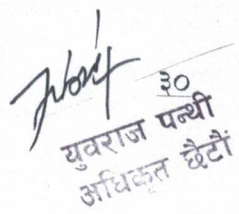 ३०
युवराज पन्थी
अधिकृत छैटौं